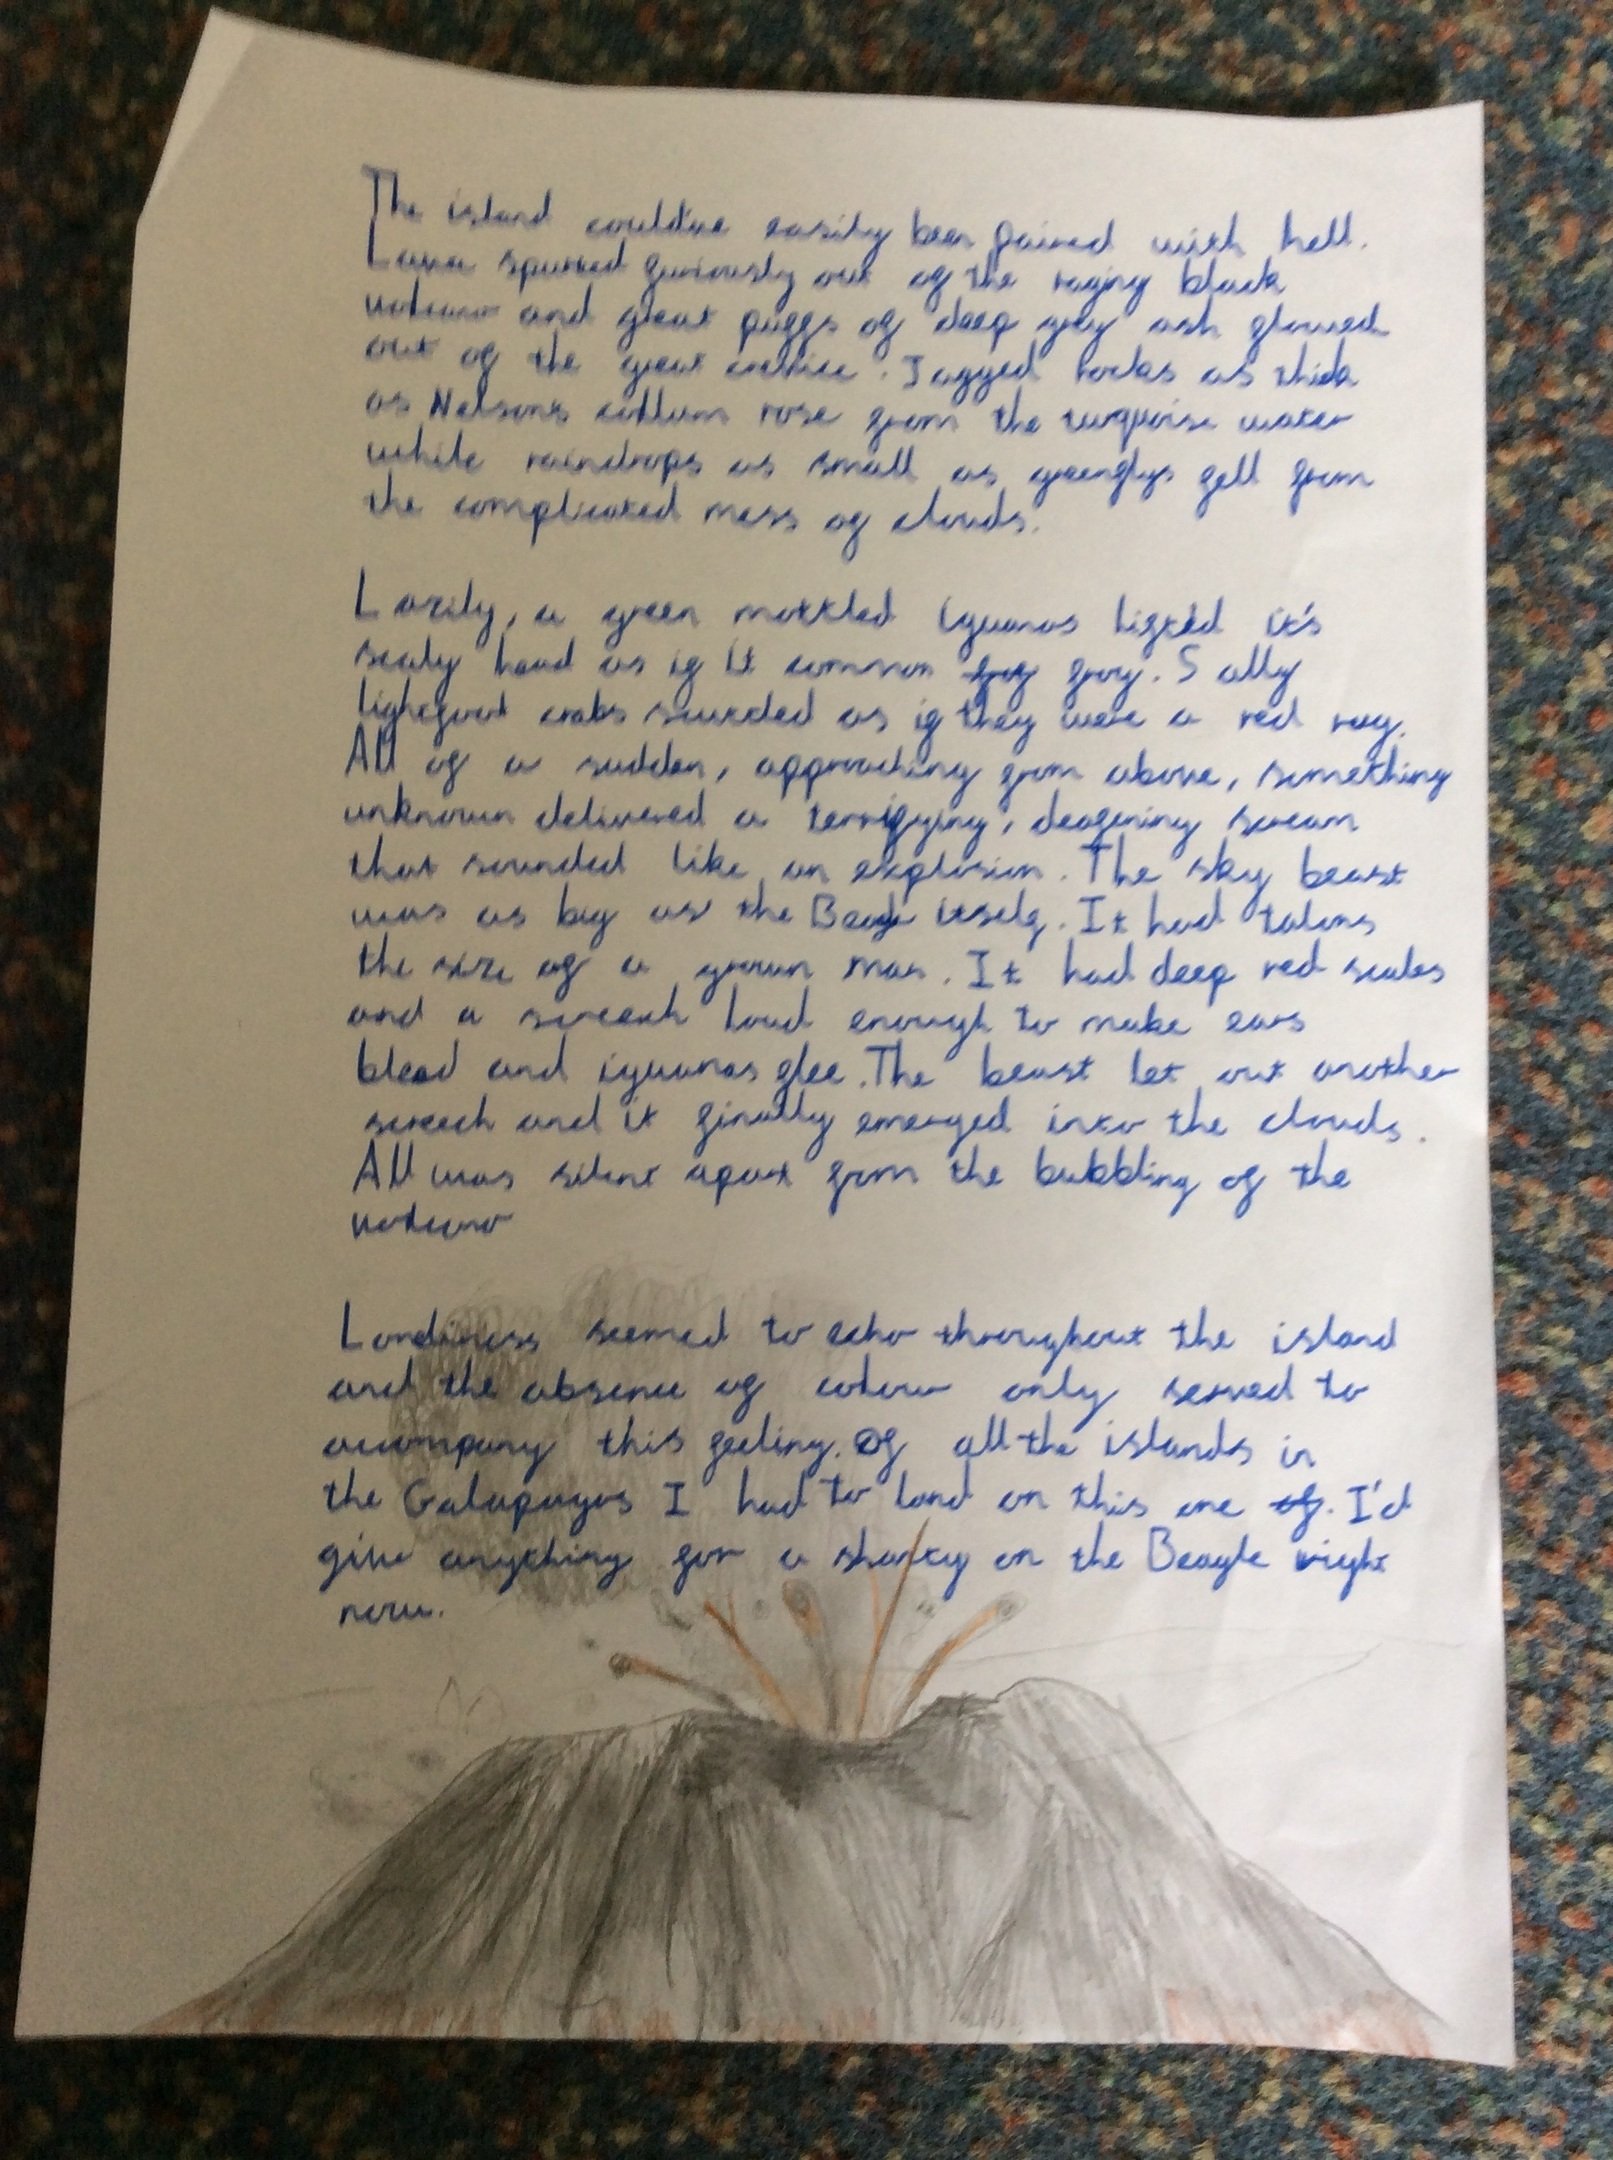 The island could've easily been paired with hell.
Lava spurted furiously out of the raging black
volcano and great puffs of deep grey ash flowed
out of the great crevice. Jagged rocks as thick
as Nelsons collum rose from the turquoise water
while raindrops as small as greenflys fell from
the complicated mess of clouds.
Lazily, a green mottled iguanas lifted it's
scaly head as if it common fog grey. Sally
lightfoot crabs scurded as if they were a red rug.
All of a sudden, approaching from above, something
unknown delivered a terrifying, deafening scream
that sounded like an explosion. The sky beast
was as big as the Beagle itself. It had talons
the size of a grown man. It had deep red scales
and a screech loud enough to make ears
bleed and iguanas flee. The beast let out another
screech and it finally emerged into the clouds.
All was silent apart from the bubbling of the
volcano
Loneliness seemed to echo throughout the island
and the absence of colour only served to
accompany this feeling. Of all the islands in
the Galapagos I had to land on this one of. I'd
give anything for a shanty on the Beagle right
now.